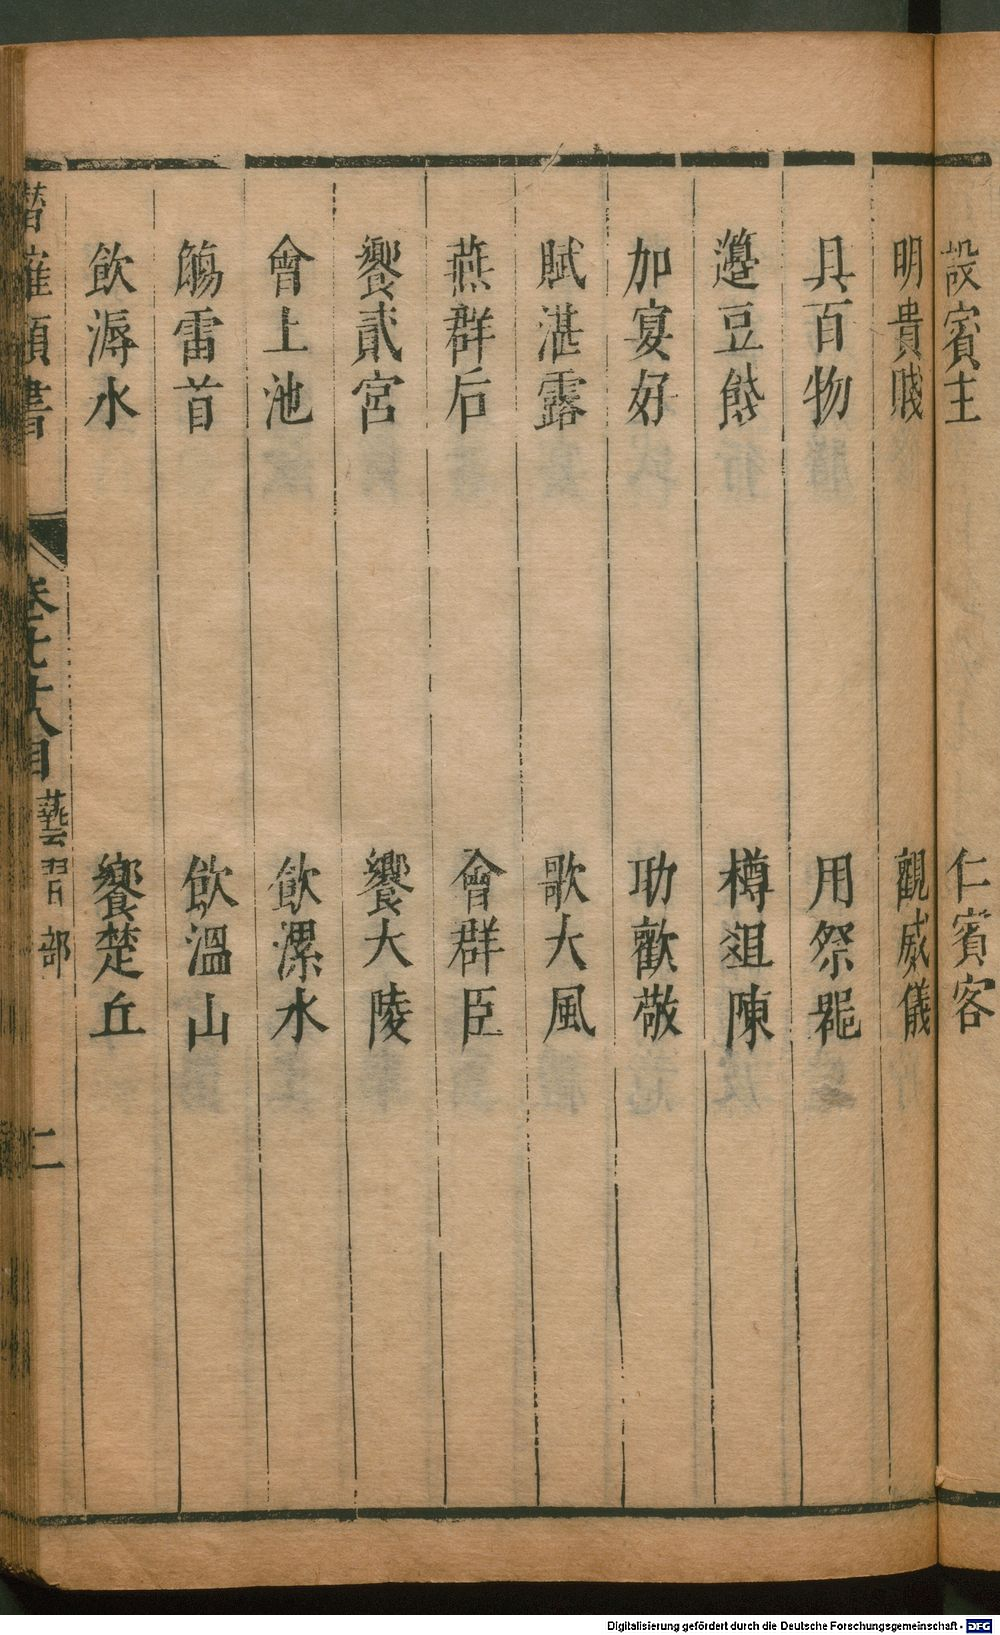 設賓主 仁賓客
明貴賤 觀威儀
具百物 用祭器
籩豆餙 樽俎陳
加宴好 助歡敬
賦湛露 歌大風
燕群后 會群臣
饗貳宮 饗大陵
會上池 飲漯水
觴雷首 飲溫山
飲溽水 饗楚丘
潜確類書 卷七十八目 藝習部 二
Digitalisierung gefördert durch die Deutsche Forschungsgemeinschaft - DFG